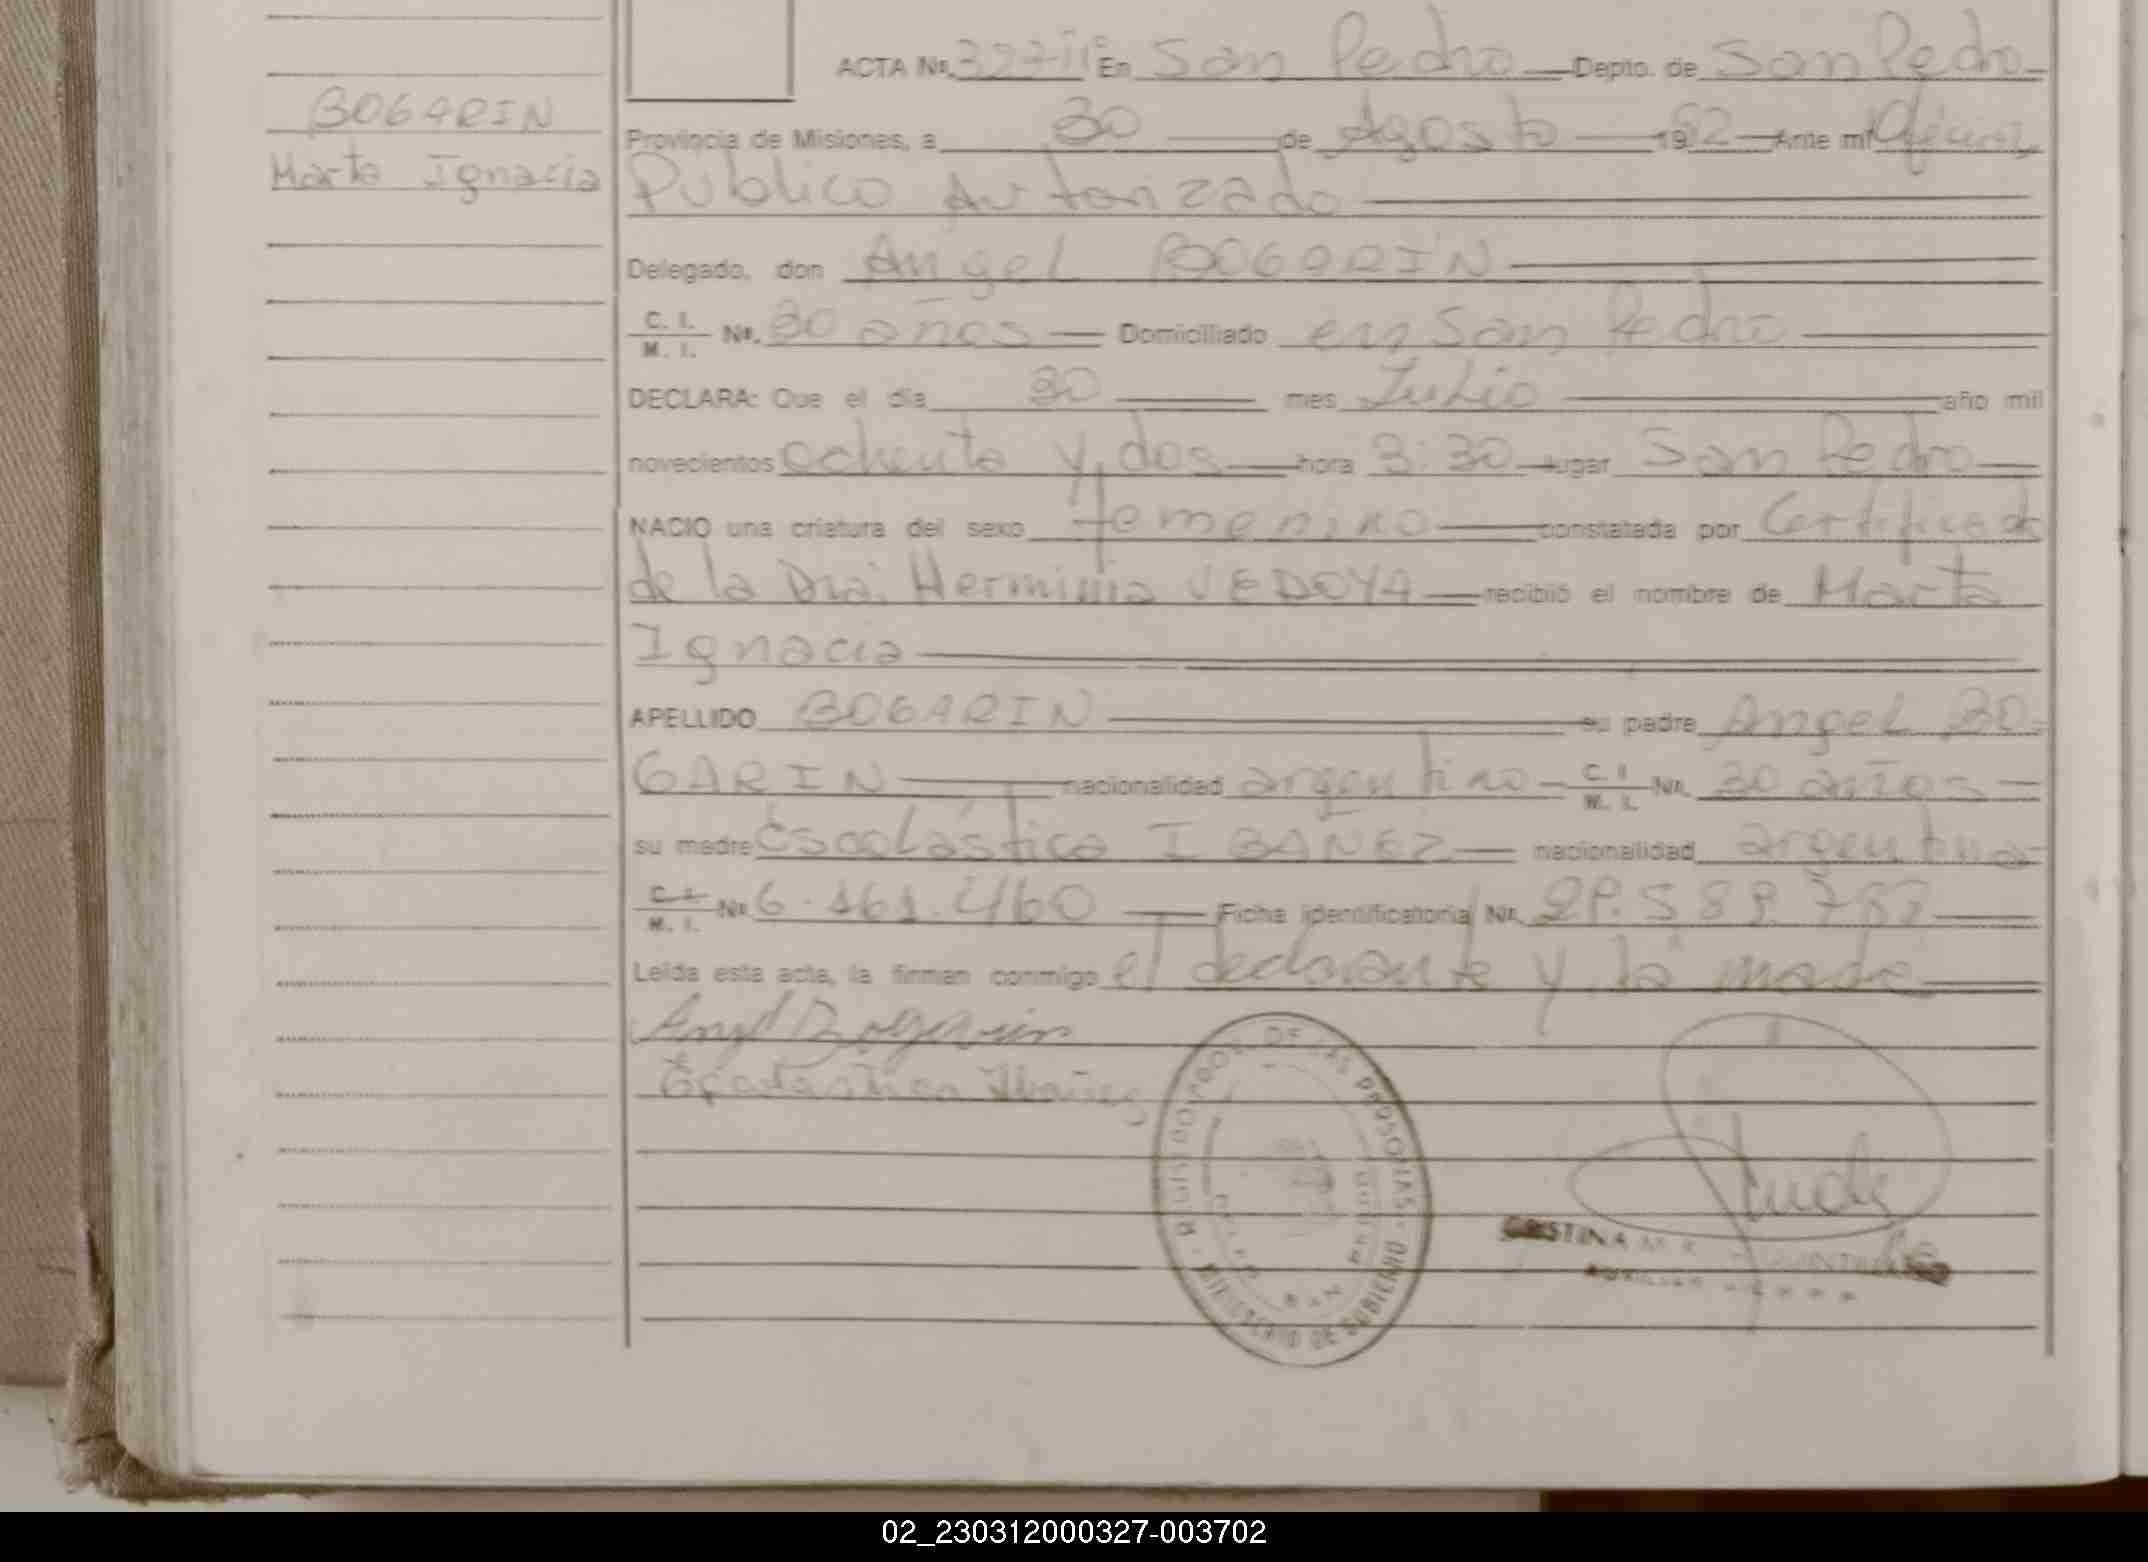 BOGARIN
Marta Ignacia
ACTA No. 327-IIº En San Pedro Depto. de San Pedro
Provincia de Misiones, a 30 de Agosto 1982 Ante mi Oficial
Publico Autorizado
Delegado, don Angel BOGARIN
C. I. M. I. No. 30 años Domiciliado en San Pedro
DECLARA: Que el día 30 mes Julio año mil
novecientos ochenta y dos hora 3:30 lugar San Pedro
NACIO una criatura del sexo femenino constatada por Certificado
de la Dra. Herminia VEDOYA recibió el nombre de Marta
Ignacia
APELLIDO BOGARIN su padre Angel BO-
GARIN nacionalidad argentino C. I. M. I. No. 30 años
su madre Escolástica IBAÑEZ nacionalidad argentina
C. I. M. I. No. 6.161.460 Ficha identificatoria No.
Leída esta acta, la firman conmigo el declarante y la madre
Angel Bogarin
Escolastica Ibañez
DE LAS PERSONAS
MINISTERIO DE GOBIERNO
02_230312000327-003702